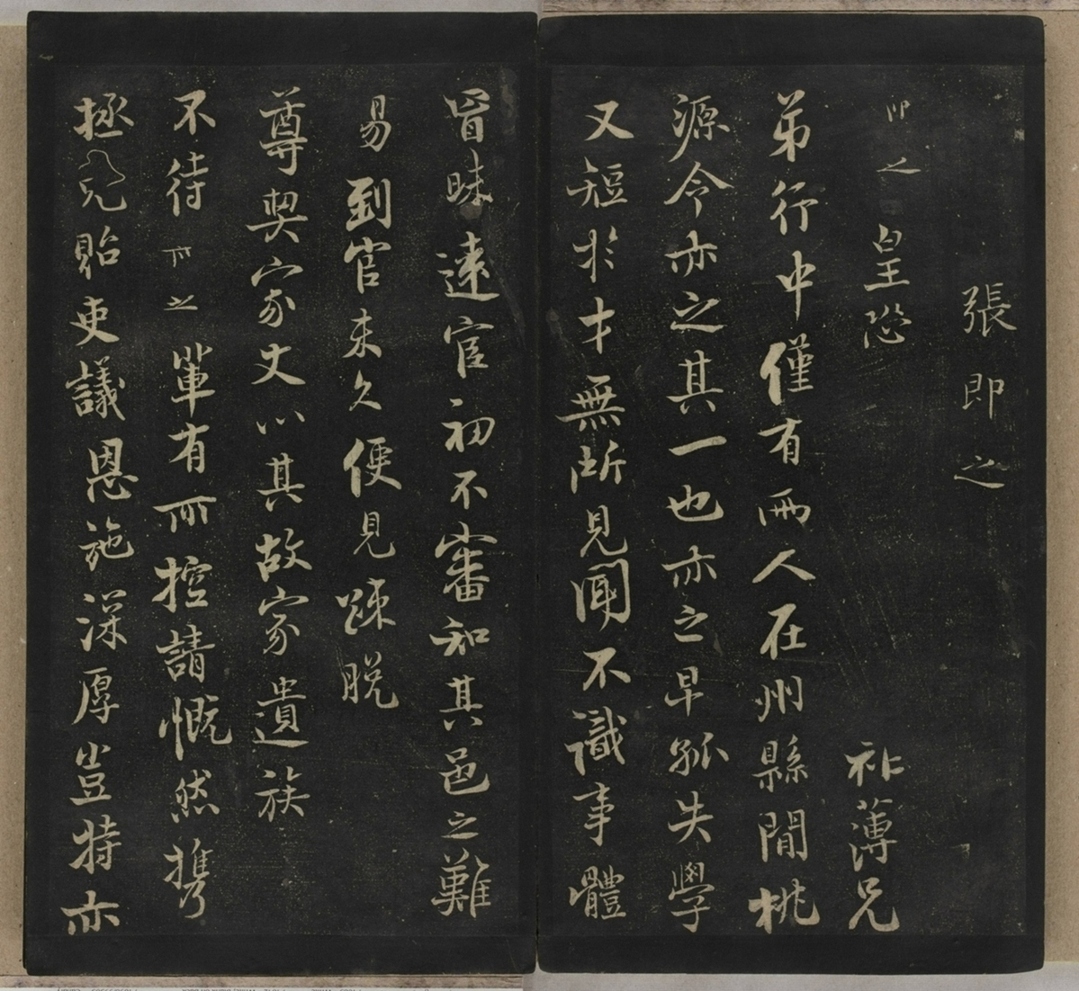 張即之
即之皇恐 祚薄兄
弟行中僅有兩人在州縣間桃
源令亦之其一也亦之早孤失學
又短於才無所見聞不識事體
冒昧遠宦初不審和其邑之難
易到官未久便見踈脫
尊契家丈以其故家遺族
不待亦之輩有所控請慨然攜
拯免貽吏議恩施深厚豈特亦